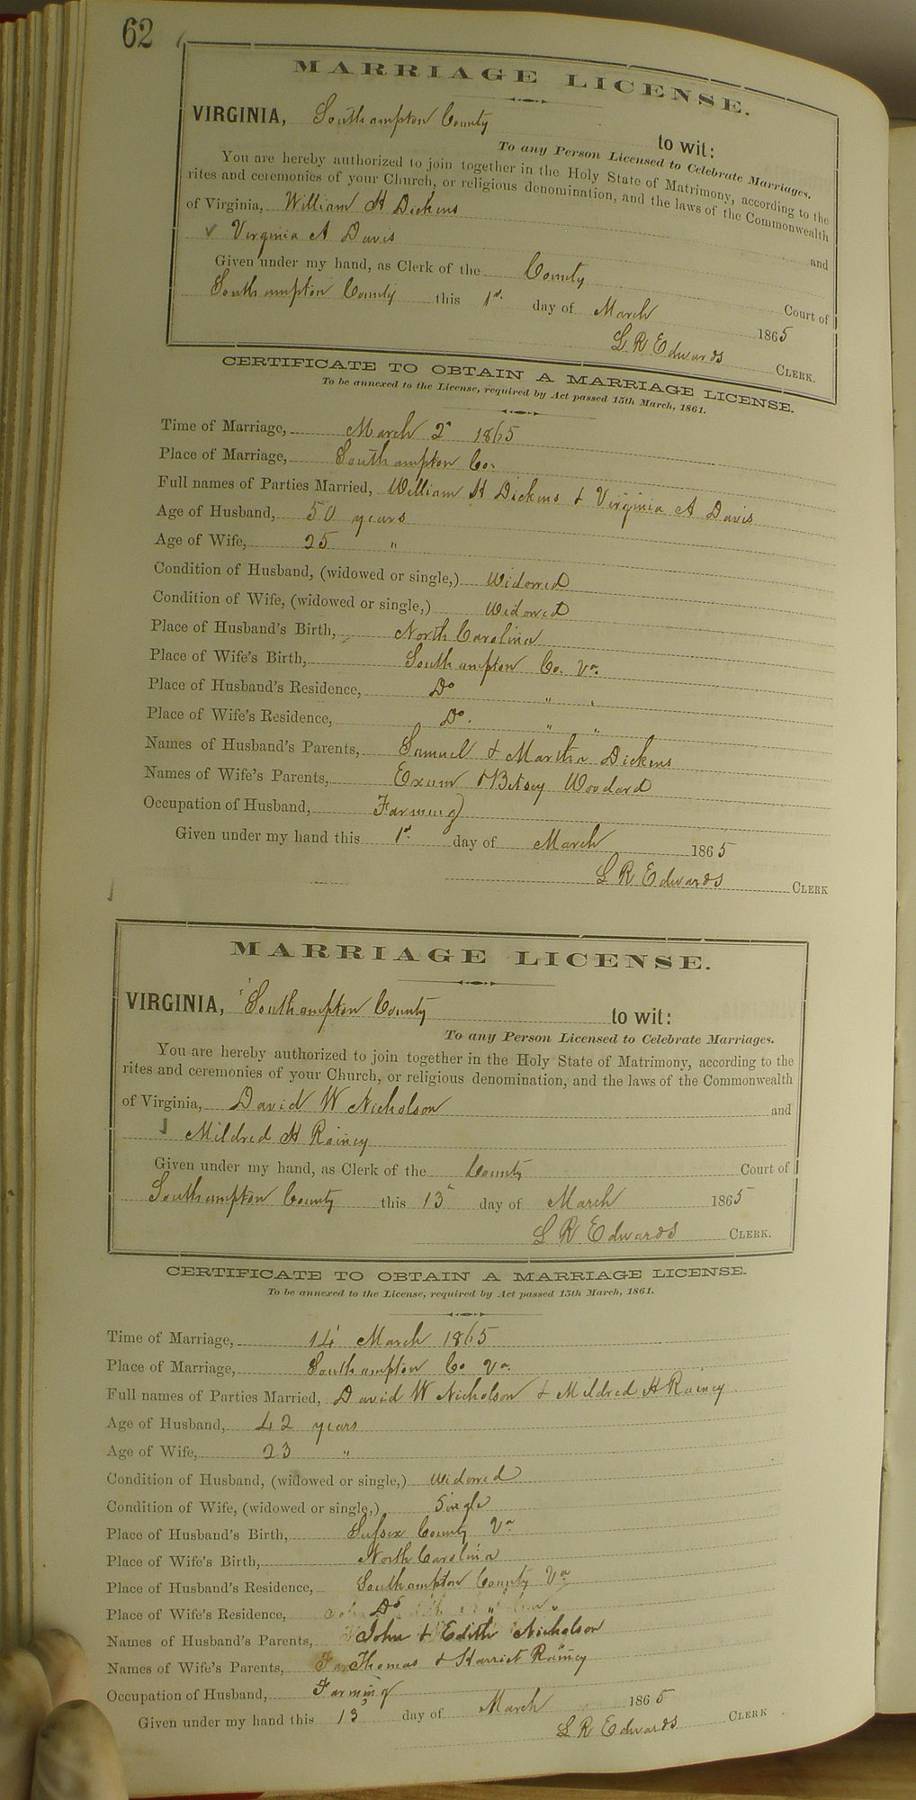 62
MARRIAGE LICENSE.
VIRGINIA, Southampton County to wit:
To any Person Licensed to Celebrate Marriages.
You are hereby authorized to join together in the Holy State of Matrimony, according to the
rites and ceremonies of your Church, or religious denomination, and the laws of the Commonwealth
of Virginia, William H Dickens and
Virginia A Davis
Given under my hand, as Clerk of the County Court of
Southampton County this 1st day of March 1865
L R Edwards CLERK.
CERTIFICATE TO OBTAIN A MARRIAGE LICENSE.
To be annexed to the License, required by Act passed 15th March, 1861.
Time of Marriage, March 2d 1865
Place of Marriage, Southampton Co.
Full names of Parties Married, William H Dickens & Virginia A Davis
Age of Husband, 50 years
Age of Wife, 25 "
Condition of Husband, (widowed or single,) Widowed
Condition of Wife, (widowed or single,) Widowed
Place of Husband's Birth, North Carolina
Place of Wife's Birth, Southampton Co. Va.
Place of Husband's Residence, Do " "
Place of Wife's Residence, Do. " "
Names of Husband's Parents, Samuel & Martha Dickens
Names of Wife's Parents, Exum & Betsey Woodard
Occupation of Husband, Farming
Given under my hand this 1st day of March 1865
L R Edwards CLERK
MARRIAGE LICENSE.
VIRGINIA, Southampton County to wit:
To any Person Licensed to Celebrate Marriages.
You are hereby authorized to join together in the Holy State of Matrimony, according to the
rites and ceremonies of your Church, or religious denomination, and the laws of the Commonwealth
of Virginia, David W Nicholson and
Mildred H Rainey
Given under my hand, as Clerk of the County Court of
Southampton County this 13 day of March 1865
L R Edwards CLERK.
CERTIFICATE TO OBTAIN A MARRIAGE LICENSE.
To be annexed to the License, required by Act passed 15th March, 1861.
Time of Marriage, 14 March 1865
Place of Marriage, Southampton Co Va.
Full names of Parties Married, David W Nicholson & Mildred H Rainey
Age of Husband, 42 years
Age of Wife, 23 "
Condition of Husband, (widowed or single,) widowed
Condition of Wife, (widowed or single,) Single
Place of Husband's Birth, Sussex County Va
Place of Wife's Birth, North Carolina
Place of Husband's Residence, Southampton County Va
Place of Wife's Residence, Do " "
Names of Husband's Parents, John & Edith Nicholson
Names of Wife's Parents, Thomas & Harriet Rainey
Occupation of Husband, Farming
Given under my hand this 13 day of March 1865
L R Edwards CLERK